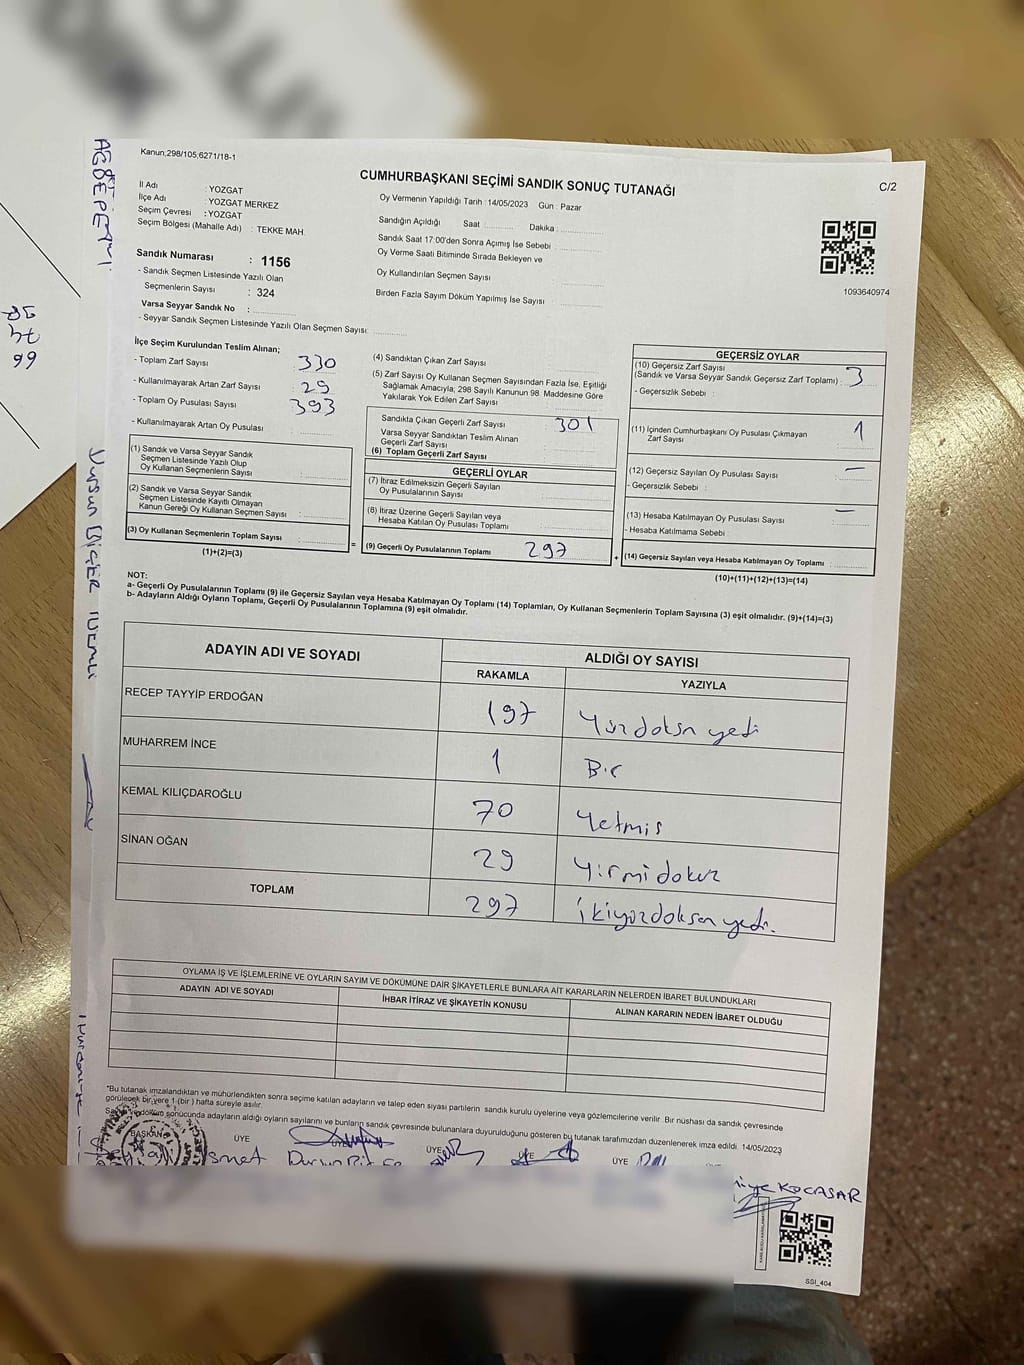 Kanun;298/105;6271/18-1
CUMHURBAŞKANI SEÇİMİ SANDIK SONUÇ TUTANAĞI
C/2
İl Adı : YOZGAT
İlçe Adı : YOZGAT MERKEZ
Seçim Çevresi : YOZGAT
Seçim Bölgesi (Mahalle Adı) : TEKKE MAH.
Oy Vermenin Yapıldığı Tarih : 14/05/2023 Gün : Pazar
Sandığın Açıldığı Saat : Dakika :
Sandık Saat 17:00'den Sonra Açımış İse Sebebi :
Oy Verme Saati Bitiminde Sırada Bekleyen ve
Oy Kullandırılan Seçmen Sayısı :
Birden Fazla Sayım Döküm Yapılmış İse Sayısı :
1093640974
Sandık Numarası : 1156
- Sandık Seçmen Listesinde Yazılı Olan
Seçmenlerin Sayısı : 324
Varsa Seyyar Sandık No :
- Seyyar Sandık Seçmen Listesinde Yazılı Olan Seçmen Sayısı:
İlçe Seçim Kurulundan Teslim Alınan;
- Toplam Zarf Sayısı : 330
- Kullanılmayarak Artan Zarf Sayısı : 29
- Toplam Oy Pusulası Sayısı : 393
- Kullanılmayarak Artan Oy Pusulası :
(1) Sandık ve Varsa Seyyar Sandık
Seçmen Listesinde Yazılı Olup
Oy Kullanan Seçmenlerin Sayısı :
(2) Sandık ve Varsa Seyyar Sandık
Seçmen Listesinde Kayıtlı Olmayan
Kanun Gereği Oy Kullanan Seçmen Sayısı :
(3) Oy Kullanan Seçmenlerin Toplam Sayısı :
(1)+(2)=(3)
=
(4) Sandıktan Çıkan Zarf Sayısı :
(5) Zarf Sayısı Oy Kullanan Seçmen Sayısından Fazla İse, Eşitliği
Sağlamak Amacıyla, 298 Sayılı Kanunun 98. Maddesine Göre
Yakılarak Yok Edilen Zarf Sayısı :
Sandıkta Çıkan Geçerli Zarf Sayısı : 301
Varsa Seyyar Sandıktan Teslim Alınan
Geçerli Zarf Sayısı :
(6) Toplam Geçerli Zarf Sayısı :
GEÇERLİ OYLAR
(7) İtiraz Edilmeksizin Geçerli Sayılan
Oy Pusulalarının Sayısı :
(8) İtiraz Üzerine Geçerli Sayılan veya
Hesaba Katılan Oy Pusulası Toplamı :
(9) Geçerli Oy Pusulalarının Toplamı : 297
+
GEÇERSİZ OYLAR
(10) Geçersiz Zarf Sayısı
(Sandık ve Varsa Seyyar Sandık Geçersiz Zarf Toplamı) : 3
- Geçersizlik Sebebi :
(11) İçinden Cumhurbaşkanı Oy Pusulası Çıkmayan
Zarf Sayısı : 1
(12) Geçersiz Sayılan Oy Pusulası Sayısı : –
- Geçersizlik Sebebi :
(13) Hesaba Katılmayan Oy Pusulası Sayısı : –
- Hesaba Katılmama Sebebi :
(14) Geçersiz Sayılan veya Hesaba Katılmayan Oy Toplamı :
(10)+(11)+(12)+(13)=(14)
NOT:
a- Geçerli Oy Pusulalarının Toplamı (9) ile Geçersiz Sayılan veya Hesaba Katılmayan Oy Toplamı (14) Toplamları, Oy Kullanan Seçmenlerin Toplam Sayısına (3) eşit olmalıdır. (9)+(14)=(3)
b- Adayların Aldığı Oyların Toplamı, Geçerli Oy Pusulalarının Toplamına (9) eşit olmalıdır.
ADAYIN ADI VE SOYADI
ALDIĞI OY SAYISI
RAKAMLA YAZIYLA
RECEP TAYYİP ERDOĞAN 197 Yüzdoksn yedi
MUHARREM İNCE 1 Bir
KEMAL KILIÇDAROĞLU 70 Yetmis
SİNAN OĞAN 29 Yirmi dokuz
TOPLAM 297 İkiyüzdoksan yedi.
OYLAMA İŞ VE İŞLEMLERİNE VE OYLARIN SAYIM VE DÖKÜMÜNE DAİR ŞİKAYETLERLE BUNLARA AİT KARARLARIN NELERDEN İBARET BULUNDUKLARI
ADAYIN ADI VE SOYADI
İHBAR İTİRAZ VE ŞİKAYETİN KONUSU
ALINAN KARARIN NEDEN İBARET OLDUĞU
*Bu tutanak imzalandıktan ve mühürlendikten sonra seçime katılan adayların ve talep eden siyasi partilerin sandık kurulu üyelerine veya gözlemcilerine verilir. Bir nüshası da sandık çevresinde
görülecek bir yere 1 (bir) hafta süreyle asılır.
sonucunda adayların aldığı oyların sayılarını ve bunların sandık çevresinde bulunanlara duyurulduğunu gösteren bu tutanak tarafımızdan düzenlenerek imza edildi. 14/05/2023
BAŞKAN ÜYE ÜYE ÜYE ÜYE ÜYE
KOCASAR
SSI_404